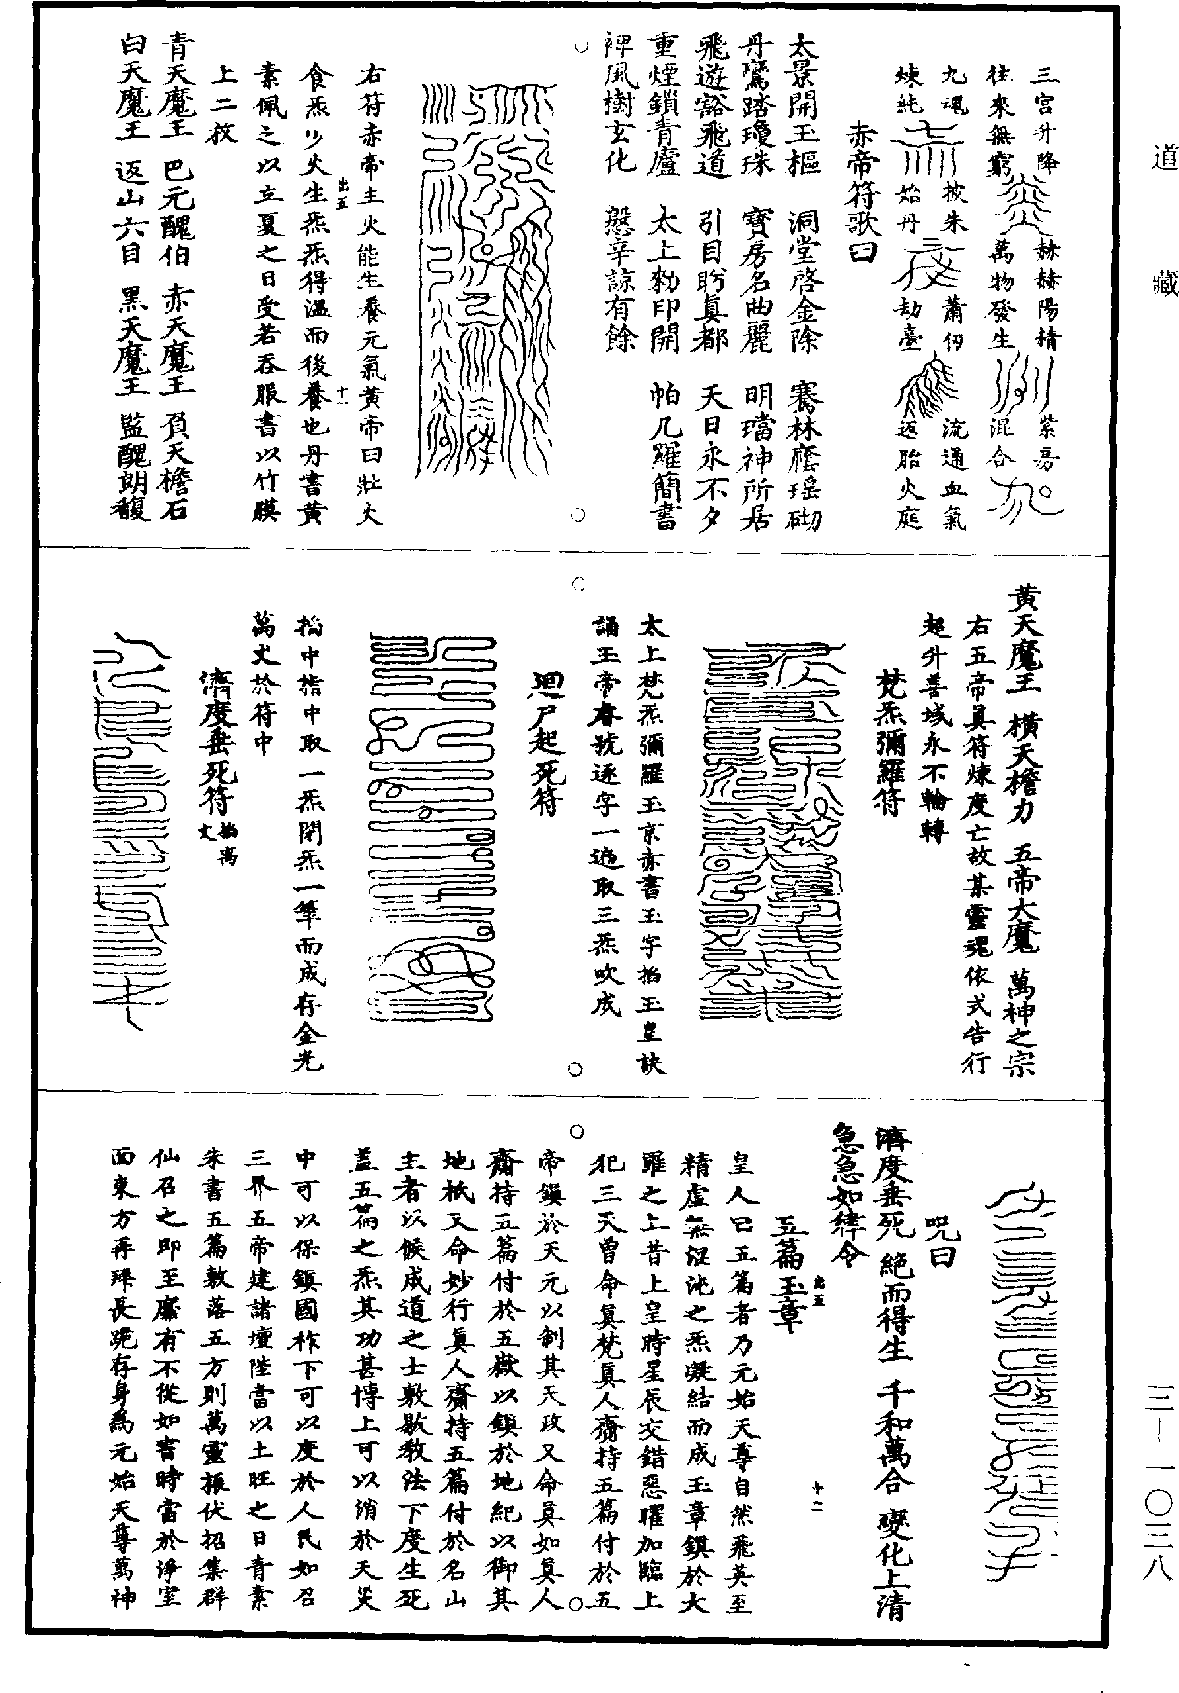 道藏
三宮升降
赫赫陽精
紫房
往來無窮
萬物發生
混合
九魂
披朱
蕭仞
流通血氣
煉純
始丹
劫臺
返胎火庭
赤帝符歌曰
太景開玉樞 洞堂啓金除 騫林廕瑶砌
丹鸞踏瓊珠 寶房名曲麗 明璫神所居
飛遊豁飛道 引目盻眞都 天日永不夕
重煙鎖青廬 太上勑印開 帕几羅簡書
裨風樹玄化 慇辛諒有餘
右符赤帝主火能生養元氣黃帝曰壯火
食炁少火生炁炁得溫而後養也丹書黃
素佩之以立夏之日受若吞服書以竹膜
上二枚
青天魔王 巴元醜伯 赤天魔王 負天檐石
白天魔王 返山六目 黑天魔王 監醜朗馥
出五
十一
黃天魔王 橫天檐力 五帝大魔 萬神之宗
右五帝眞符煉度亡故某靈魂依式告行
超升善域永不輪轉
梵炁彌羅符
太上梵炁彌羅玉京赤書玉字掐玉皇訣
誦玉帝尊號逐字一遍取三炁吹成
迴尸起死符
掐中指中取一炁閉炁一筆而成存金光
萬丈於符中
濟度垂死符
咒曰
濟度垂死 絕而得生 千和萬合 變化上清
急急如律令
五篇玉章
出五
十二
皇人曰五篇者乃元始天尊自然飛英至
精虛無混沌之炁凝結而成玉章鎮於大
羅之上昔上皇時星辰交錯惡曜加臨上
犯三天曾命眞梵眞人齎持五篇付於五
帝鎮於天元以制其天政又命眞如眞人
齎持五篇付於五嶽以鎮於地紀以御其
地柢又命妙行眞人齎持五篇付於名山
主者以候成道之士敷歇教法下度生死
蓋五篇之炁其功甚博上可以消於天災
中可以保鎮國祚下可以度於人民如召
三界五帝建諸壇陛當以土旺之日青素
朱書五篇敷落五方則萬靈振伏招集群
仙召之即至靡有不從如書時當於淨室
面東方再拜長跪存身爲元始天尊萬神
三—一〇三八